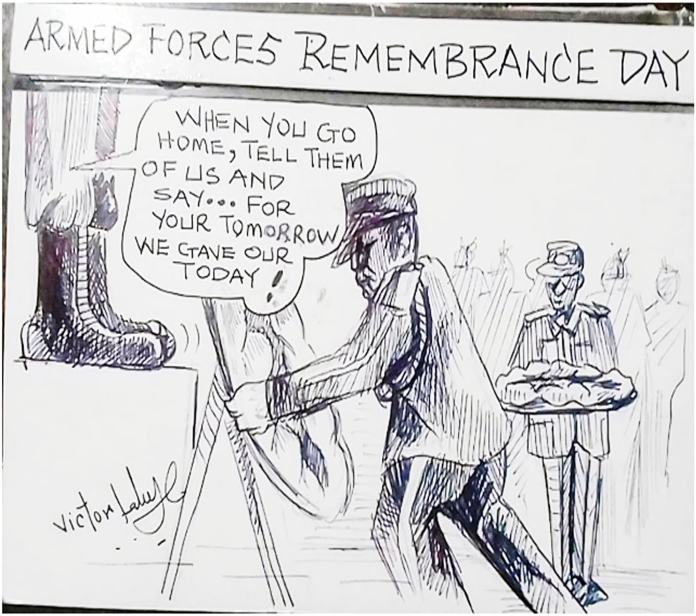 ARMED FORCES REMEMBRANCE DAY
WHEN YOU GO
HOME, TELL THEM
OF US AND
SAY... FOR
YOUR TOMORROW
WE GAVE OUR
TODAY
Victor